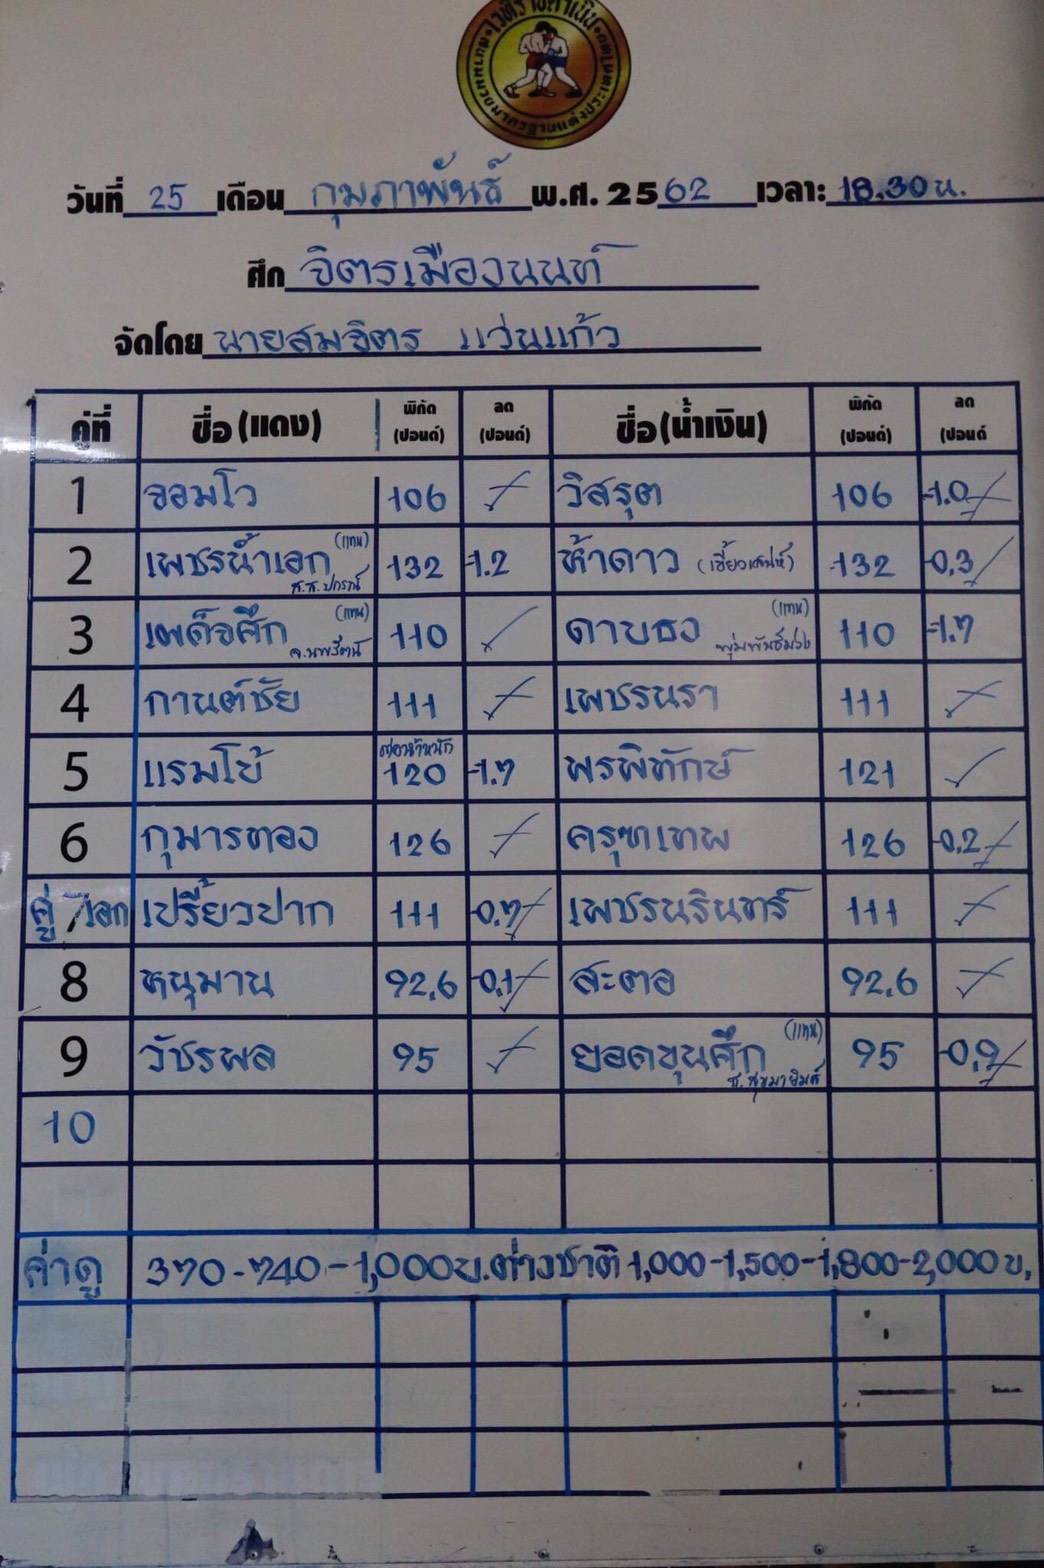 วันที่ 25 เดือน กุมภาพันธ์ พ.ศ. 2562 เวลา: 18.30 น.
ศึก จิตรเมืองนนท์
จัดโดย นายสมจิตร แว่นแก้ว
คู่ที่ ชื่อ (แดง) พิกัด (ปอนด์) ลด (ปอนด์) ชื่อ (น้ำเงิน) พิกัด (ปอนด์) ลด (ปอนด์)
1 จอมโว 106 วิสรุต 106 -1.0
2 เพชรน้ำเอก (แทน) ส.ส.ปกรณ์ 132 -1.2 ห้าดาว (เขี้ยวเสน่ห์) 132 -0.3
3 เผด็จศึก (แทน) 110 ดาบธง (แทน) 110 -1.7
4 กานต์ชัย 111 เพชรนรา 111
5 แรมโบ้ 120 -1.7 พรพิทักษ์ 121
6 กุมารทอง 126 ครุฑเทพ 126 -0.2
คู่ 7 เอก เปรี้ยวปาก 111 -0.7 เพชรนรินทร์ 111
8 หนุมาน 92.6 -0.1 สะตอ 92.6
9 วัชรพล 95 ยอดขุนศึก (แทน) 95 -0.9
10
ค่าดู 370-740-1,000บ.ต่างชาติ 1,000-1,500-1,800-2,000บ.